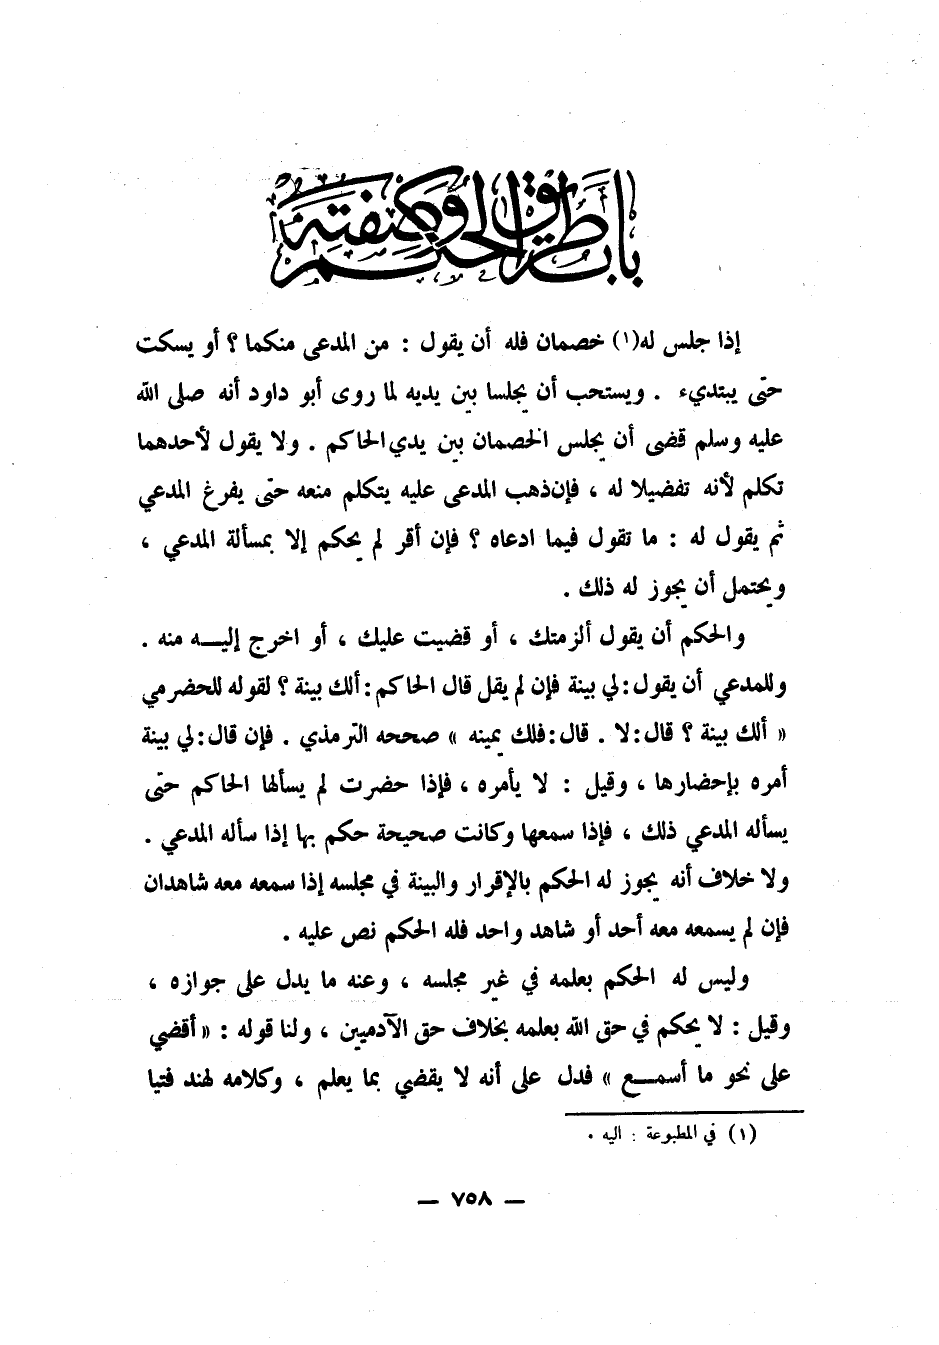 باب طريق الحكم وصفته
إذا جلس له(١) خصمان فله أن يقول : من المدعى منكما ؟ أو يسكت
حتى يبتديء . ويستحب أن يجلسا بين يديه لما روى أبو داود أنه صلى الله
عليه وسلم قضى أن يجلس الخصمان بين يدي الحاكم . ولا يقول لأحدهما
تكلم لأنه تفضيلا له ، فإن ذهب المدعى عليه يتكلم منعه حتى يفرغ المدعي
ثم يقول له : ما تقول فيما ادعاه ؟ فإن أقر لم يحكم إلا بمسألة المدعي ،
ويحتمل أن يجوز له ذلك .
والحكم أن يقول ألزمتك ، أو قضيت عليك ، أو اخرج إليـــه منه .
وللمدعي أن يقول : لي بينة فإن لم يقل قال الحاكم : ألك بينة ؟ لقوله للحضرمي
« ألك بينة ؟ قال : لا . قال : فلك يمينه » صححه الترمذي . فإن قال : لي بينة
أمره بإحضارها ، وقيل : لا يأمره ، فإذا حضرت لم يسألها الحاكم حتى
يسأله المدعي ذلك ، فإذا سمعها وكانت صحيحة حكم بها إذا سأله المدعي .
ولا خلاف أنه يجوز له الحكم بالإقرار والبينة في مجلسه إذا سمعه معه شاهدان
فإن لم يسمعه معه أحد أو شاهد واحد فله الحكم نص عليه .
وليس له الحكم بعلمه في غير مجلسه ، وعنه ما يدل على جوازه ،
وقيل : لا يحكم في حق الله بعلمه بخلاف حق الآدميين ، ولنا قوله : « أقضي
على نحو ما أسمـــع » فدل على أنه لا يقضي بما يعلم ، وكلامه لهند فتيا
(١) في المطبوعة : اليه .
— ٧٥٨ —